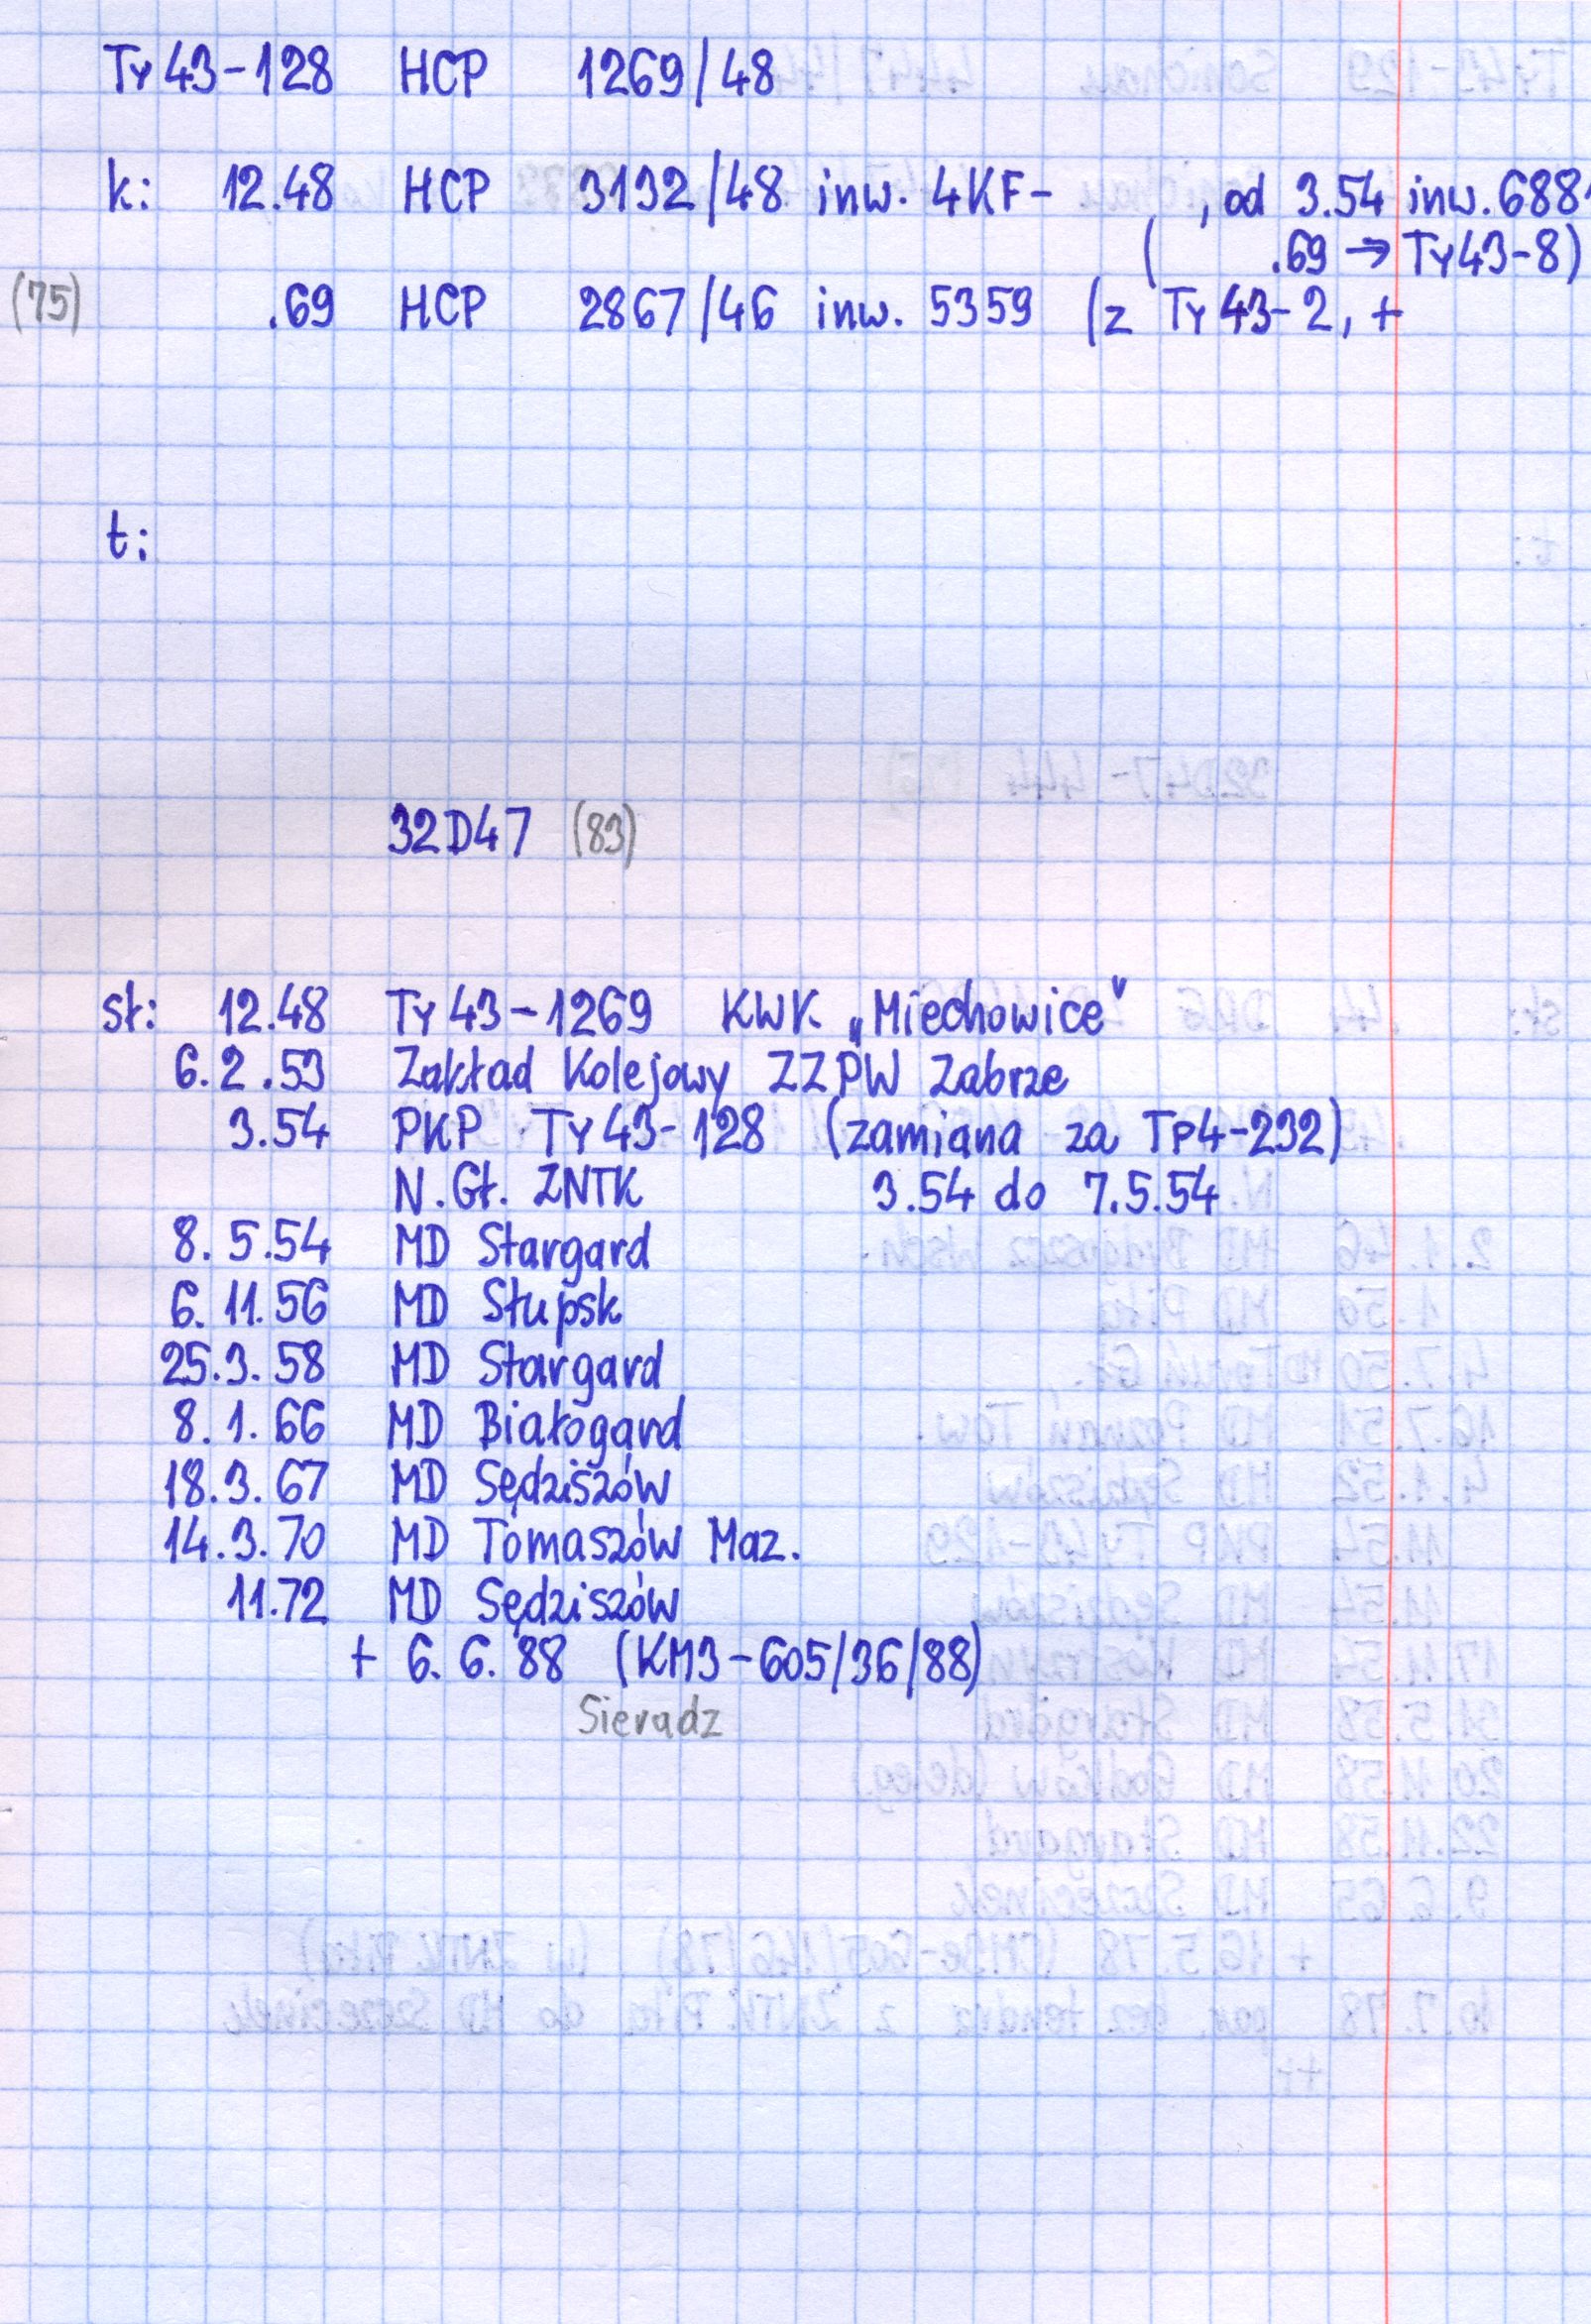 Ty43-128 HCP 1269/48
k: 12.48 HCP 3132/48 inw. 4KF- , od 3.54 inw. 6881
( .69 → Ty43-8)
(75) .69 HCP 2867/46 inw. 5359 (z Ty43-2, +
t:
32D47 (83)
st: 12.48 Ty43-1269 KWK „Miechowice”
6.2.53 Zakład Kolejowy ZZPW Zabrze
3.54 PKP Ty43-128 (zamiana za Tp4-232)
N.Gł. ZNTK 3.54 do 7.5.54
8.5.54 MD Stargard
6.11.56 MD Słupsk
25.3.58 MD Stargard
8.1.66 MD Białogard
18.3.67 MD Sędziszów
14.3.70 MD Tomaszów Maz.
11.72 MD Sędziszów
+ 6.6.88 (KM3-605/36/88)
Sieradz